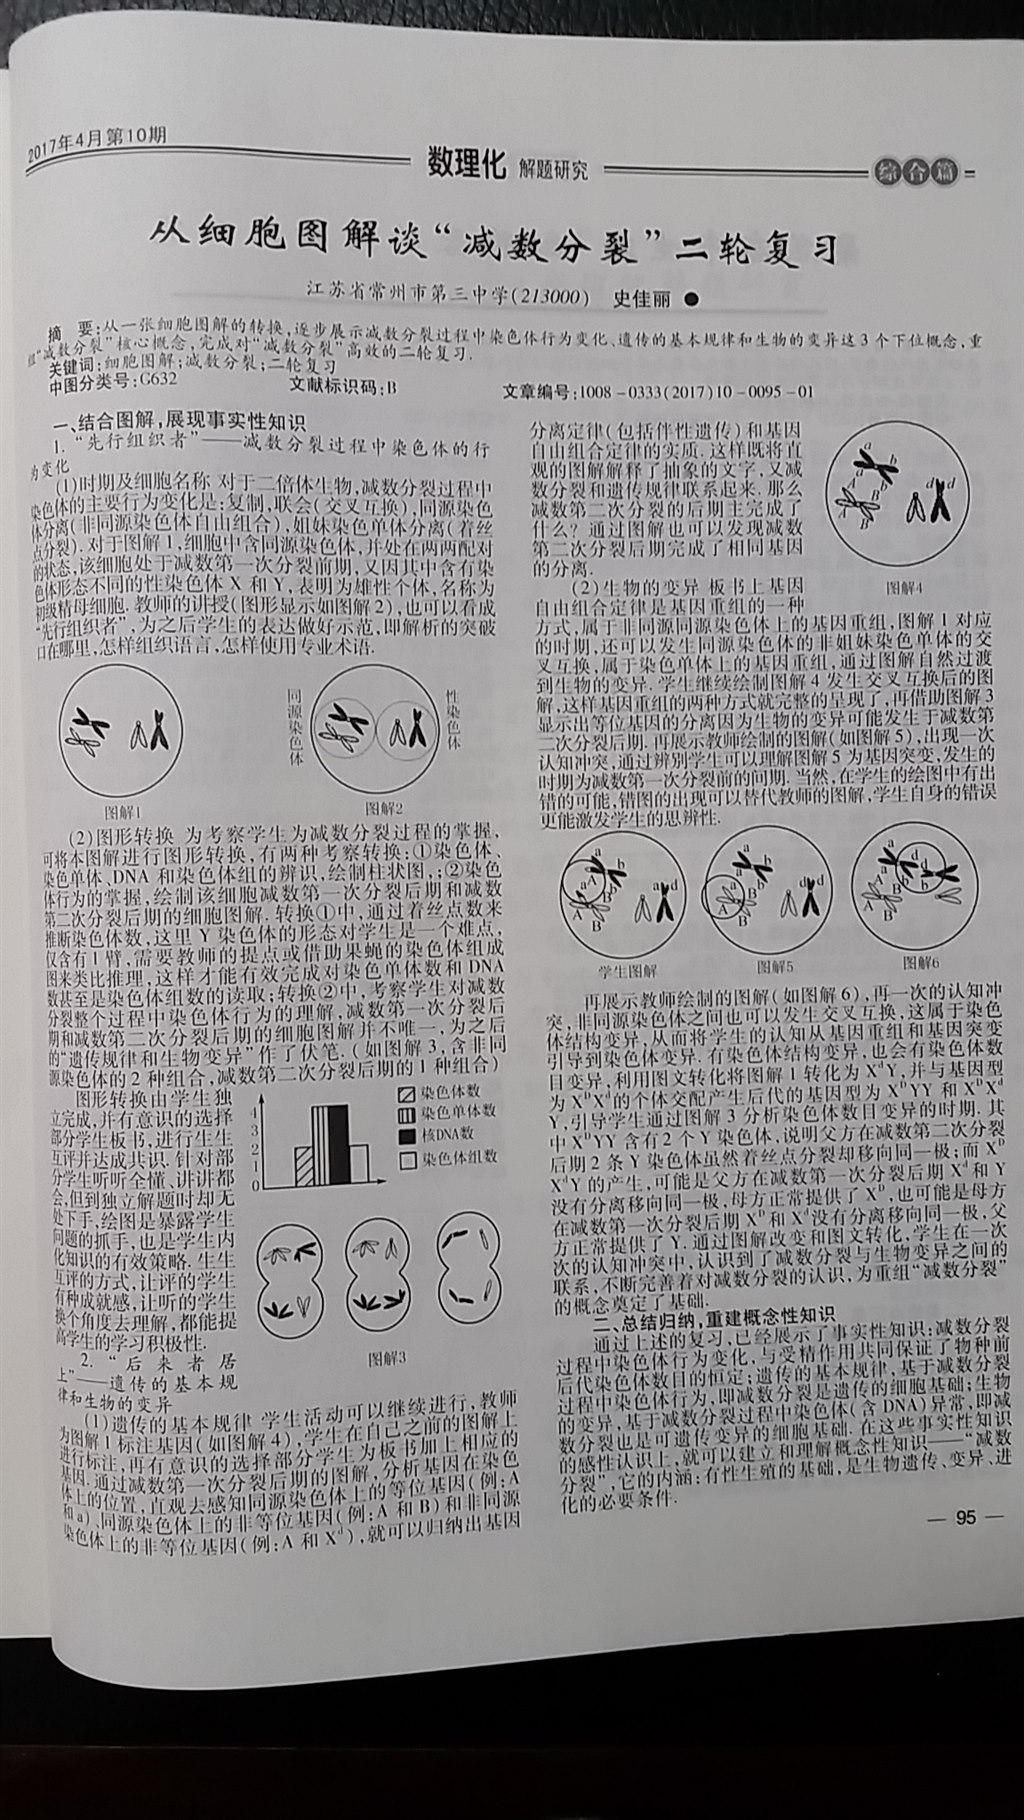 2017年4月第10期
数理化 解题研究
综合篇
从细胞图解谈“减数分裂”二轮复习
江苏省常州市第三中学(213000) 史佳丽 ●
摘 要:从一张细胞图解的转换,逐步展示减数分裂过程中染色体行为变化、遗传的基本规律和生物的变异这3个下位概念,重
组“减数分裂”核心概念,完成对“减数分裂”高效的二轮复习.
关键词:细胞图解;减数分裂;二轮复习
中图分类号:G632 文献标识码:B 文章编号:1008-0333(2017)10-0095-01
一、结合图解,展现事实性知识
1. “先行组织者”——减数分裂过程中染色体的行
为变化
(1)时期及细胞名称 对于二倍体生物,减数分裂过程中
染色体的主要行为变化是:复制,联会(交叉互换),同源染色
体分离(非同源染色体自由组合),姐妹染色单体分离(着丝
点分裂).对于图解1,细胞中含同源染色体,并处在两两配对
的状态,该细胞处于减数第一次分裂前期,又因其中含有染
色体形态不同的性染色体X和Y,表明为雄性个体,名称为
初级精母细胞.教师的讲授(图形显示如图解2),也可以看成
“先行组织者”,为之后学生的表达做好示范,即解析的突破
口在哪里,怎样组织语言,怎样使用专业术语.
同源染色体
性染色体
图解1
图解2
(2)图形转换 为考察学生为减数分裂过程的掌握,
可将本图解进行图形转换,有两种考察转换:①染色体、
染色单体、DNA和染色体组的辨识,绘制柱状图,;②染色
体行为的掌握,绘制该细胞减数第一次分裂后期和减数
第二次分裂后期的细胞图解.转换①中,通过着丝点数来
推断染色体数,这里Y染色体的形态对学生是一个难点,
仅含有1臂,需要教师的提点或借助果蝇的染色体组成
图来类比推理,这样才能有效完成对染色单体数和DNA
数甚至是染色体组数的读取;转换②中,考察学生对减数
分裂整个过程中染色体行为的理解,减数第一次分裂后
期和减数第二次分裂后期的细胞图解并不唯一,为之后
的“遗传规律和生物变异”作了伏笔.(如图解3,含非同
源染色体的2种组合,减数第二次分裂后期的1种组合)
图形转换由学生独
立完成,并有意识的选择
部分学生板书,进行生生
互评并达成共识.针对部
分学生听听全懂、讲讲都
会,但到独立解题时却无
处下手,绘图是暴露学生
问题的抓手,也是学生内
化知识的有效策略.生生
互评的方式,让评的学生
有种成就感,让听的学生
换个角度去理解,都能提
高学生的学习积极性.
4
3
2
1
0
染色体数
染色单体数
核DNA数
染色体组数
图解3
2. “后来者居
上”——遗传的基本规
律和生物的变异
(1)遗传的基本规律 学生活动可以继续进行,教师
为图解1标注基因(如图解4),学生在自己之前的图解上
进行标注,再有意识的选择部分学生为板书加上相应的
基因.通过减数第一次分裂后期的图解,分析基因在染色
体上的位置,直观去感知同源染色体上的等位基因(例:A
和a)、同源染色体上的非等位基因(例:A和B)和非同源
染色体上的非等位基因(例:A和Xᵈ),就可以归纳出基因
分离定律(包括伴性遗传)和基因
自由组合定律的实质.这样既将直
观的图解解释了抽象的文字,又减
数分裂和遗传规律联系起来.那么
减数第二次分裂的后期主完成了
什么? 通过图解也可以发现减数
第二次分裂后期完成了相同基因
的分离.
a
a
b
b
A
A
B
B
d
d
图解4
(2)生物的变异 板书上基因
自由组合定律是基因重组的一种
方式,属于非同源同源染色体上的基因重组,图解1对应
的时期,还可以发生同源染色体的非姐妹染色单体的交
叉互换,属于染色单体上的基因重组,通过图解自然过渡
到生物的变异.学生继续绘制图解4发生交叉互换后的图
解,这样基因重组的两种方式就完整的呈现了,再借助图解3
显示出等位基因的分离因为生物的变异可能发生于减数第
二次分裂后期.再展示教师绘制的图解(如图解5),出现一次
认知冲突,通过辨别学生可以理解图解5为基因突变,发生的
时期为减数第一次分裂前的间期.当然,在学生的绘图中有出
错的可能,错图的出现可以替代教师的图解,学生自身的错误
更能激发学生的思辨性.
学生图解
图解5
图解6
再展示教师绘制的图解(如图解6),再一次的认知冲
突,非同源染色体之间也可以发生交叉互换,这属于染色
体结构变异,从而将学生的认知从基因重组和基因突变
引导到染色体变异.有染色体结构变异,也会有染色体数
目变异,利用图文转化将图解1转化为XᵈY,并与基因型
为XᴰXᵈ的个体交配产生后代的基因型为XᴰYY和XᴰXᵈ
Y,引导学生通过图解3分析染色体数目变异的时期.其
中XᴰYY含有2个Y染色体,说明父方在减数第二次分裂
后期2条Y染色体虽然着丝点分裂却移向同一极;而Xᴰ
XᵈY的产生,可能是父方在减数第一次分裂后期Xᵈ和Y
没有分离移向同一极,母方正常提供了Xᴰ,也可能是母方
在减数第一次分裂后期Xᴰ和Xᵈ没有分离移向同一极,父
方正常提供了Y.通过图解改变和图文转化,学生在一次
次的认知冲突中,认识到了减数分裂与生物变异之间的
联系,不断完善着对减数分裂的认识,为重组“减数分裂”
的概念奠定了基础.
二、总结归纳,重建概念性知识
通过上述的复习,已经展示了事实性知识:减数分裂
过程中染色体行为变化,与受精作用共同保证了物种前
后代染色体数目的恒定;遗传的基本规律,基于减数分裂
过程中染色体行为,即减数分裂是遗传的细胞基础;生物
的变异,基于减数分裂过程中染色体(含DNA)异常,即减
数分裂也是可遗传变异的细胞基础.在这些事实性知识
的感性认识上,就可以建立和理解概念性知识——“减数
分裂”,它的内涵:有性生殖的基础,是生物遗传、变异、进
化的必要条件.
— 95 —